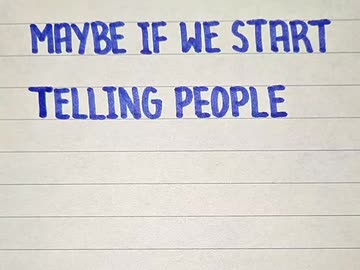 MAYBE IF WE START
TELLING PEOPLE